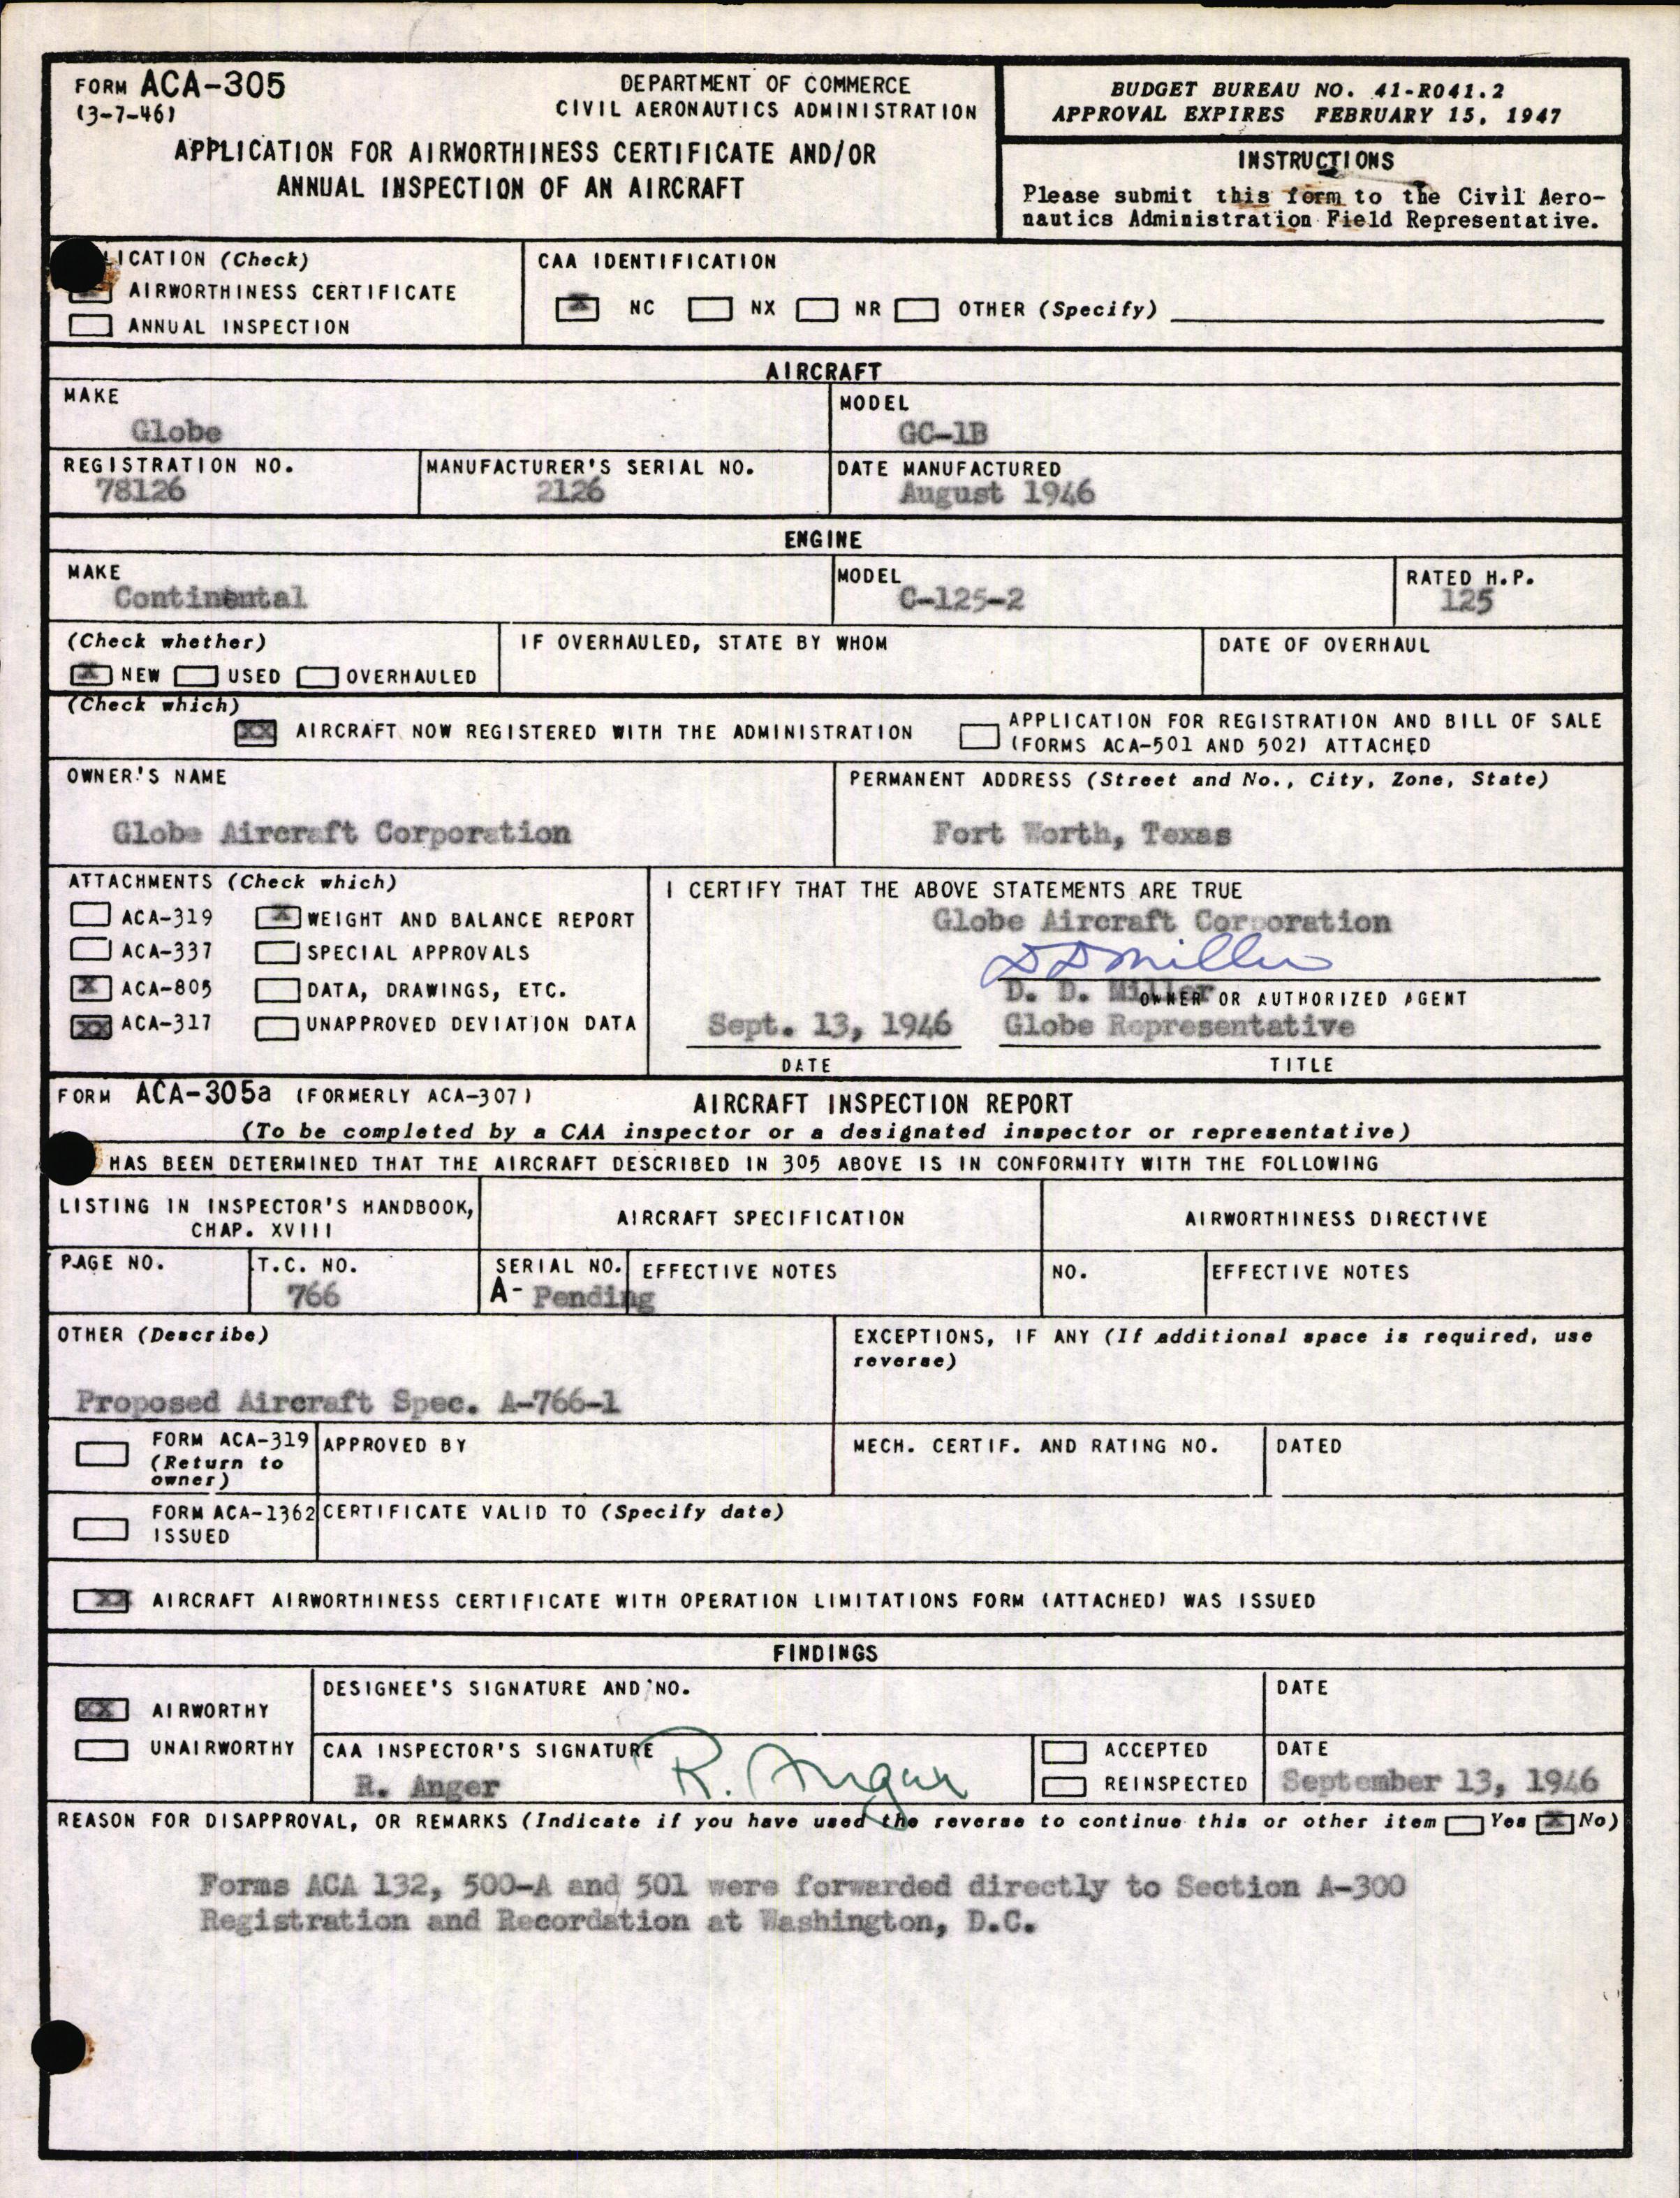 FORM ACA-305
(3-7-46)
DEPARTMENT OF COMMERCE
CIVIL AERONAUTICS ADMINISTRATION
APPLICATION FOR AIRWORTHINESS CERTIFICATE AND/OR
ANNUAL INSPECTION OF AN AIRCRAFT
BUDGET BUREAU NO. 41-R041.2
APPROVAL EXPIRES FEBRUARY 15, 1947
INSTRUCTIONS
Please submit this form to the Civil Aero-
nautics Administration Field Representative.
LICATION (Check)
AIRWORTHINESS CERTIFICATE
ANNUAL INSPECTION
CAA IDENTIFICATION
X NC NX NR OTHER (Specify)
AIRCRAFT
MAKE
Globe
MODEL
GC-1B
REGISTRATION NO.
78126
MANUFACTURER'S SERIAL NO.
2126
DATE MANUFACTURED
August 1946
ENGINE
MAKE
Continental
MODEL
C-125-2
RATED H.P.
125
(Check whether)
X NEW USED OVERHAULED
IF OVERHAULED, STATE BY WHOM
DATE OF OVERHAUL
(Check which)
XX AIRCRAFT NOW REGISTERED WITH THE ADMINISTRATION
APPLICATION FOR REGISTRATION AND BILL OF SALE
(FORMS ACA-501 AND 502) ATTACHED
OWNER'S NAME
Globe Aircraft Corporation
PERMANENT ADDRESS (Street and No., City, Zone, State)
Fort Worth, Texas
ATTACHMENTS (Check which)
ACA-319 X WEIGHT AND BALANCE REPORT
ACA-337 SPECIAL APPROVALS
X ACA-805 DATA, DRAWINGS, ETC.
XX ACA-317 UNAPPROVED DEVIATION DATA
I CERTIFY THAT THE ABOVE STATEMENTS ARE TRUE
Globe Aircraft Corporation
D D Miller
D. D. Miller
OWNER OR AUTHORIZED AGENT
Sept. 13, 1946 Globe Representative
DATE TITLE
FORM ACA-305a (FORMERLY ACA-307)
AIRCRAFT INSPECTION REPORT
(To be completed by a CAA inspector or a designated inspector or representative)
HAS BEEN DETERMINED THAT THE AIRCRAFT DESCRIBED IN 305 ABOVE IS IN CONFORMITY WITH THE FOLLOWING
LISTING IN INSPECTOR'S HANDBOOK,
CHAP. XVIII
AIRCRAFT SPECIFICATION
AIRWORTHINESS DIRECTIVE
PAGE NO.
T.C. NO.
766
SERIAL NO.
A- Pending
EFFECTIVE NOTES
NO.
EFFECTIVE NOTES
OTHER (Describe)
Proposed Aircraft Spec. A-766-1
EXCEPTIONS, IF ANY (If additional space is required, use
reverse)
FORM ACA-319
(Return to
owner)
APPROVED BY
MECH. CERTIF. AND RATING NO.
DATED
FORM ACA-1362
ISSUED
CERTIFICATE VALID TO (Specify date)
XX AIRCRAFT AIRWORTHINESS CERTIFICATE WITH OPERATION LIMITATIONS FORM (ATTACHED) WAS ISSUED
FINDINGS
XX AIRWORTHY
UNAIRWORTHY
DESIGNEE'S SIGNATURE AND NO.
DATE
CAA INSPECTOR'S SIGNATURE
R. Anger R. Anger
ACCEPTED
REINSPECTED
DATE
September 13, 1946
REASON FOR DISAPPROVAL, OR REMARKS (Indicate if you have used the reverse to continue this or other item Yes X No)
Forms ACA 132, 500-A and 501 were forwarded directly to Section A-300
Registration and Recordation at Washington, D.C.